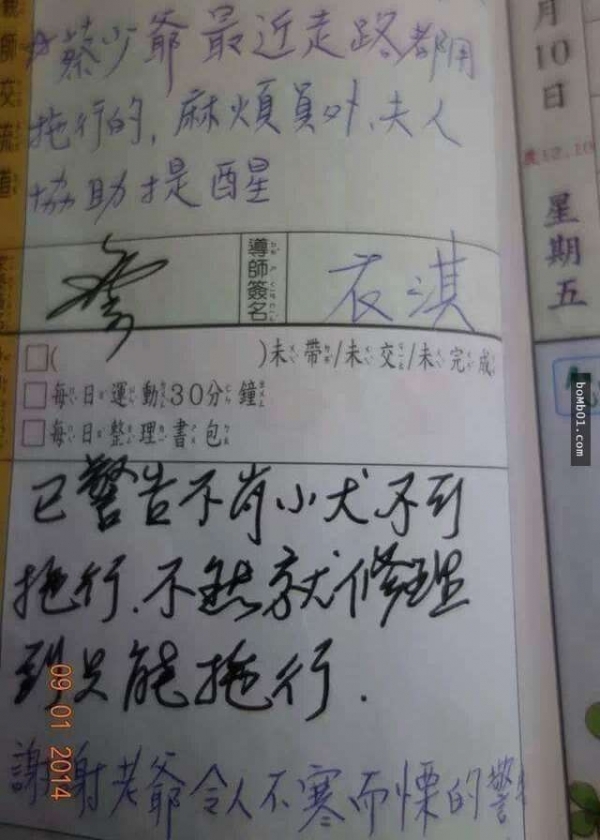 蔡少爺最近走路都用
拖行的,麻煩員外、夫人
協助提醒
導師簽名
衣淇
□( )未帶/未交/未完成
□每日運動30分鐘
□每日整理書包
已警告不肖小犬不可
拖行.不然就修理
到只能拖行.
謝謝老爺令人不寒而慄的警
月10日
星期五
農12.10
09 01 2014
boMb01.com